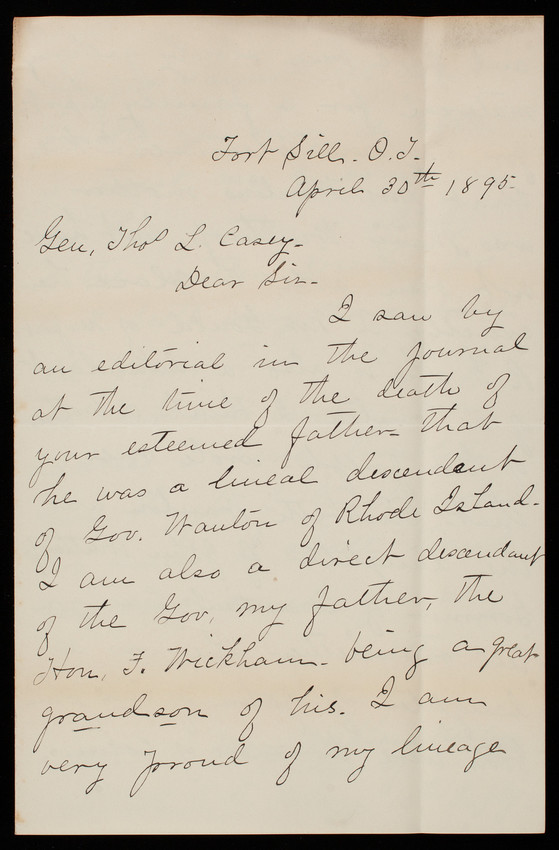 Fort Sill. O.T.
April 30th 1895.
Gen, Thos L. Casey.
Dear Sir.
I saw by
an editorial in the Journal
at the time of the death of
your esteemed father that
he was a lineal descendant
of Gov. Wanton of Rhode Island.
I am also a direct descendant
of the Gov, my father, the
Hon, F. Wickham. being a great
grandson of his. I am
very proud of my lineage